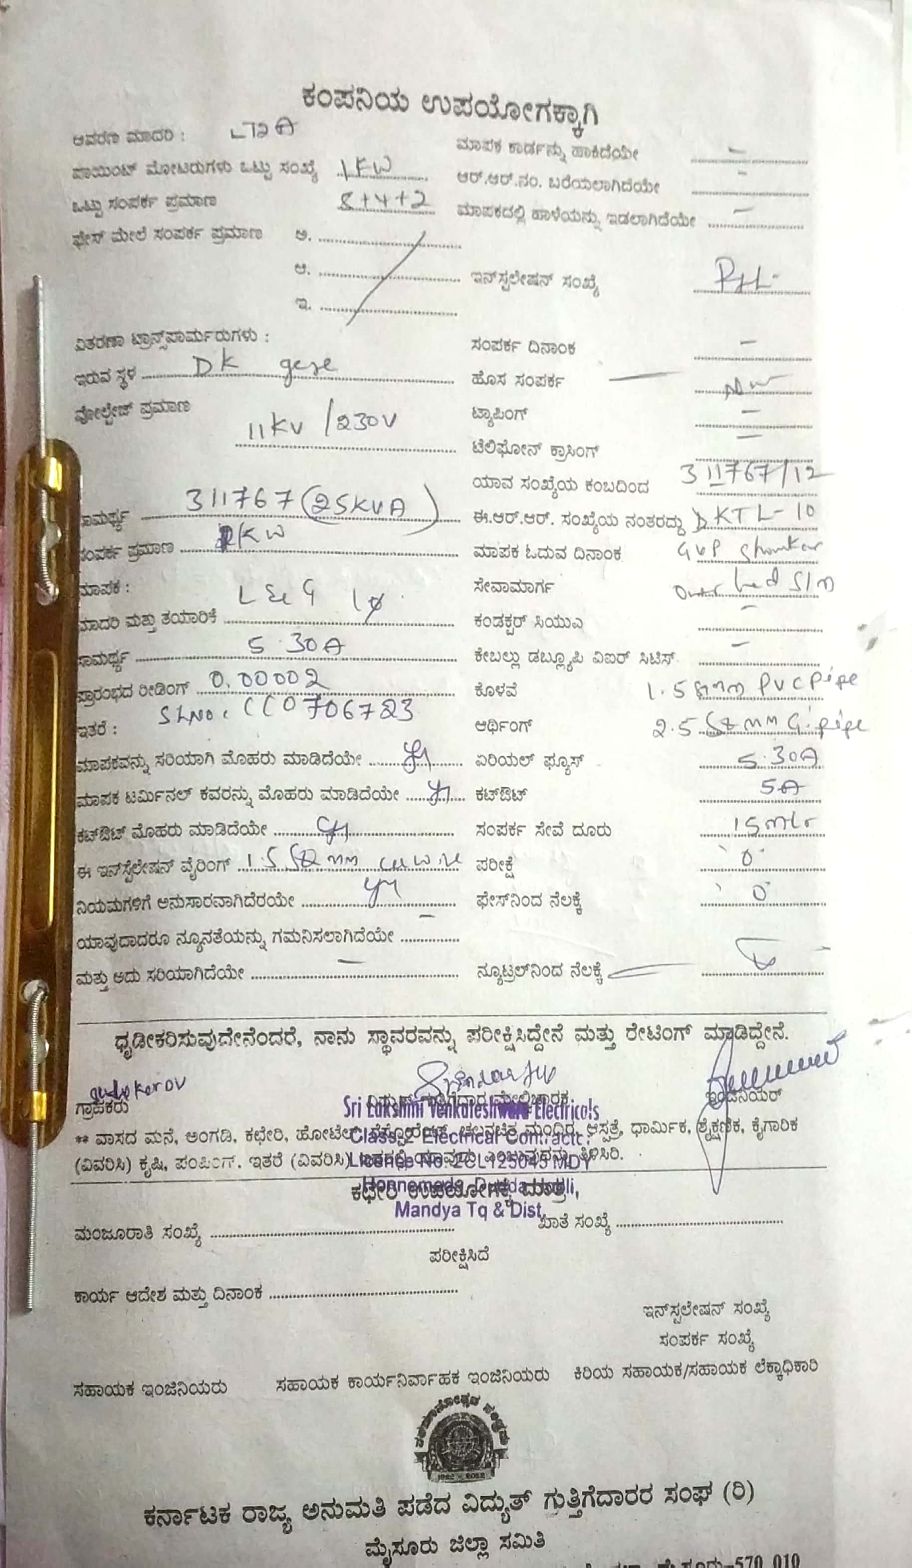 ಕಂಪನಿಯ ಉಪಯೋಗಕ್ಕಾಗಿ
ಆವರಣ ಮಾದರಿ : LT2A
ಮಾಪಕ ಕಾರ್ಡನ್ನು ಹಾಕಿದೆಯೇ –
ಪಾಯಿಂಟ್ ಮೋಟರುಗಳು ಒಟ್ಟು ಸಂಖ್ಯೆ 1KW
ಆರ್.ಆರ್.ನಂ. ಬರೆಯಲಾಗಿದೆಯೇ –
ಒಟ್ಟು ಸಂಪರ್ಕ ಪ್ರಮಾಣ 8+4+2
ಮಾಪಕದಲ್ಲಿ ಹಾಳೆಯನ್ನು ಇಡಲಾಗಿದೆಯೇ –
ಫೇಸ್ ಮೇಲೆ ಸಂಪರ್ಕ ಪ್ರಮಾಣ ಅ.
ಆ.
ಇನ್‌ಸ್ಟಲೇಷನ್ ಸಂಖ್ಯೆ
ಇ.
ವಿತರಣಾ ಟ್ರಾನ್ಸ್‌ಪಾರ್ಮರುಗಳು :
ಸಂಪರ್ಕ ದಿನಾಂಕ –
ಇರುವ ಸ್ಥಳ DK
ಹೊಸ ಸಂಪರ್ಕ
ವೋಲ್ಟೇಜ್ ಪ್ರಮಾಣ 11KV / 230V
ಟ್ಯಾಪಿಂಗ್ –
ಟೆಲಿಫೋನ್ ಕ್ರಾಸಿಂಗ್ –
ಯಾವ ಸಂಖ್ಯೆಯ ಕಂಬದಿಂದ 311767/12
ಸಾಮರ್ಥ್ಯ 311767 (25KVA)
ಈ.ಆರ್.ಆರ್. ಸಂಖ್ಯೆಯ ನಂತರದ್ದು DKTL-10
ಸಂಪರ್ಕ ಪ್ರಮಾಣ KW
ಮಾಪಕ ಓದುವ ದಿನಾಂಕ
ಮಾಪಕ : L&G 1φ
ಸೇವಾಮಾರ್ಗ Over head
ಮಾದರಿ ಮತ್ತು ತಯಾರಿಕೆ
ಕಂಡಕ್ಟರ್ ಸಿಯುಎ –
ಸಾಮರ್ಥ್ಯ 5 30A
ಕೇಬಲ್ಲು ಡಬ್ಲ್ಯೂಪಿ ವಿಐರ್ ಸಿಟಿಸ್ –
ಪ್ರಾರಂಭದ ರೀಡಿಂಗ್ 0.00002
ಕೊಳವೆ 1.5 mm PVC Pipe
ಇತರೆ : SLNO: CC0706723
ಆರ್ಥಿಂಗ್ 2.5 Sq mm G.pipe
ಮಾಪಕವನ್ನು ಸರಿಯಾಗಿ ಮೊಹರು ಮಾಡಿದೆಯೇ
ಏರಿಯಲ್ ಫ್ಯೂಸ್ 5.30A
ಮಾಪಕ ಟರ್ಮಿನಲ್ ಕವರನ್ನು ಮೊಹರು ಮಾಡಿದೆಯೇ
ಕಟ್‌ಔಟ್ 5A
ಕಟ್‌ಔಟ್ ಮೊಹರು ಮಾಡಿದೆಯೇ
ಸಂಪರ್ಕ ಸೇವೆ ದೂರು 15mtr
ಈ ಇನ್‌ಸ್ಟೆಲೇಷನ್ ವೈರಿಂಗ್ 1.5 Sq mm cu wire
ಪರೀಕ್ಷೆ '0'
ನಿಯಮಗಳಿಗೆ ಅನುಸಾರವಾಗಿದೆರೆಯೇ
ಫೇಸ್‌ನಿಂದ ನೆಲಕ್ಕೆ '0'
ಯಾವುದಾದರೂ ನ್ಯೂನತೆಯನ್ನು ಗಮನಿಸಲಾಗಿದೆಯೇ –
ಮತ್ತು ಅದು ಸರಿಯಾಗಿದೆಯೇ –
ನ್ಯೂಟ್ರಲ್‌ನಿಂದ ನೆಲಕ್ಕೆ
ಧೃಡೀಕರಿಸುವುದೇನೆಂದರೆ, ನಾನು ಸ್ಥಾವರವನ್ನು ಪರೀಕ್ಷಿಸಿದ್ದೇನೆ ಮತ್ತು ರೇಟಿಂಗ್ ಮಾಡಿದ್ದೇನೆ.
ಗ್ರಾಹಕರು
ಇಂಜಿನಿಯರ್
Sri Lakshmi Venkateshwara Electricols
** ವಾಸದ ಮನೆ, ಅಂಗಡಿ, ಕಛೇರಿ, ಹೋಟೆಲ್ ಆಸ್ಪತ್ರೆ, ಧಾರ್ಮಿಕ, ಶೈಕ್ಷಣಿಕ, ಕೈಗಾರಿಕ
Electrical Contractc
(ವಿವರಿಸಿ) ಕೃಷಿ, ಪಂಪಿಂಗ್. ಇತರೆ (ವಿವರಿಸಿ)
Licence No. 2CL125045 MDY
ಕಛೇರಿ ಉಪಯೋಗಕ್ಕೆ ಮಾತ್ರ
Mandya Tq & Dist.
ಮಂಜೂರಾತಿ ಸಂಖ್ಯೆ
ಖಾತೆ ಸಂಖ್ಯೆ
ಪರೀಕ್ಷಿಸಿದೆ
ಕಾರ್ಯ ಆದೇಶ ಮತ್ತು ದಿನಾಂಕ
ಇನ್‌ಸ್ಟಲೇಷನ್ ಸಂಖ್ಯೆ
ಸಂಪರ್ಕ ಸಂಖ್ಯೆ
ಸಹಾಯಕ ಇಂಜಿನಿಯರು ಸಹಾಯಕ ಕಾರ್ಯನಿರ್ವಾಹಕ ಇಂಜಿನಿಯರು ಕಿರಿಯ ಸಹಾಯಕ/ಸಹಾಯಕ ಲೆಕ್ಕಾಧಿಕಾರಿ
ಕರ್ನಾಟಕ ರಾಜ್ಯ ಅನುಮತಿ ಪಡೆದ ವಿದ್ಯುತ್ ಗುತ್ತಿಗೆದಾರರ ಸಂಘ (ರಿ)
ಮೈಸೂರು ಜಿಲ್ಲಾ ಸಮಿತಿ